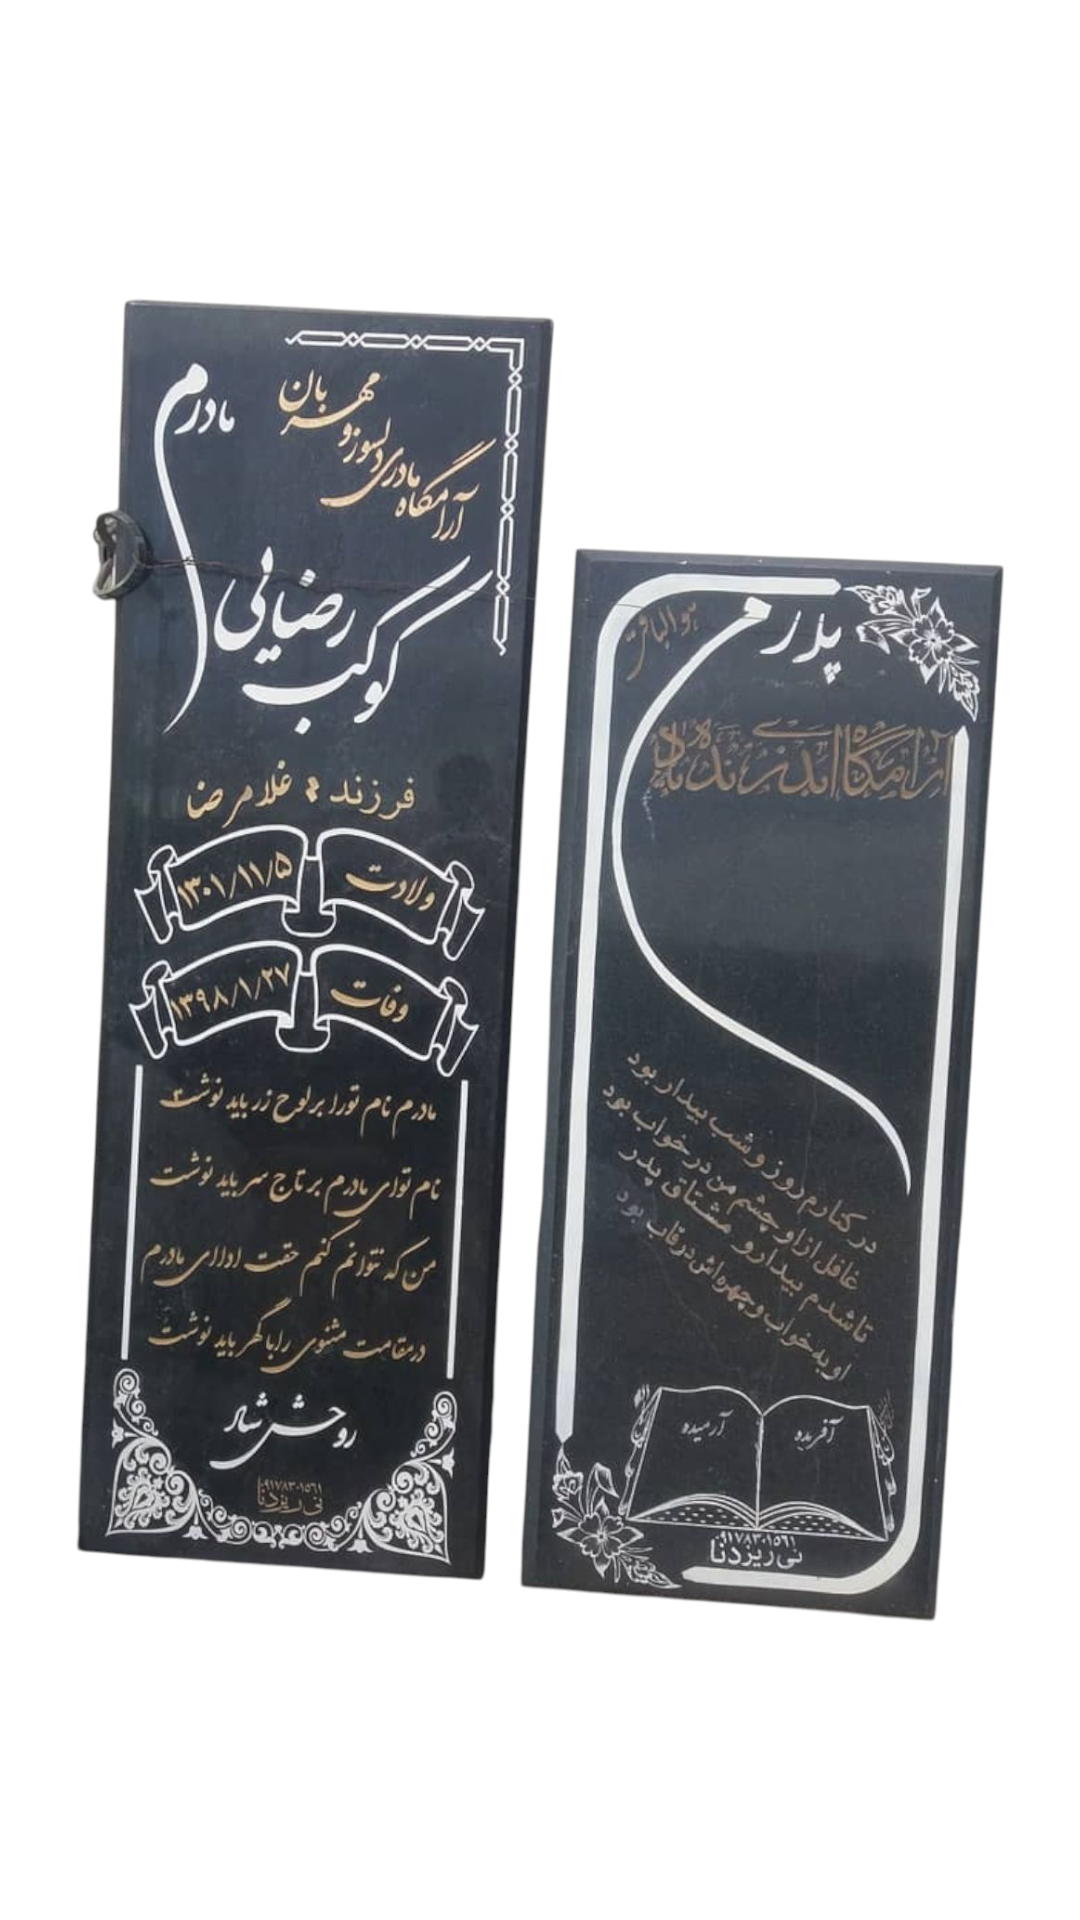 مادرم
آرامگاه مادری دلسوز و مهربان
کوکب رضایی
فرزند : غلامرضا
ولادت ۱۳۰۱/۱۱/۵
وفات ۱۳۹۸/۱/۲۷
مادرم نام تو را بر لوح زر باید نوشت
نام تو ای مادرم بر تاج سر باید نوشت
من که نتوانم کنم حقت ادا ای مادرم
در مقامت مثنوی را با گهر باید نوشت
روحش شاد
۰۹۱۷۸۳۰۱۵۶۱
نی ریز دنا
هوالباقی
پدرم
آرامگاه ابدی زنده یاد
در کنارم روز و شب بیدار بود
غافل از او چشم من در خواب بود
تا شدم بیدار و مشتاق پدر
او به خواب و چهره اش در قاب بود
آفریده
آرمیده
۰۹۱۷۸۳۰۱۵۶۱
نی ریز دنا